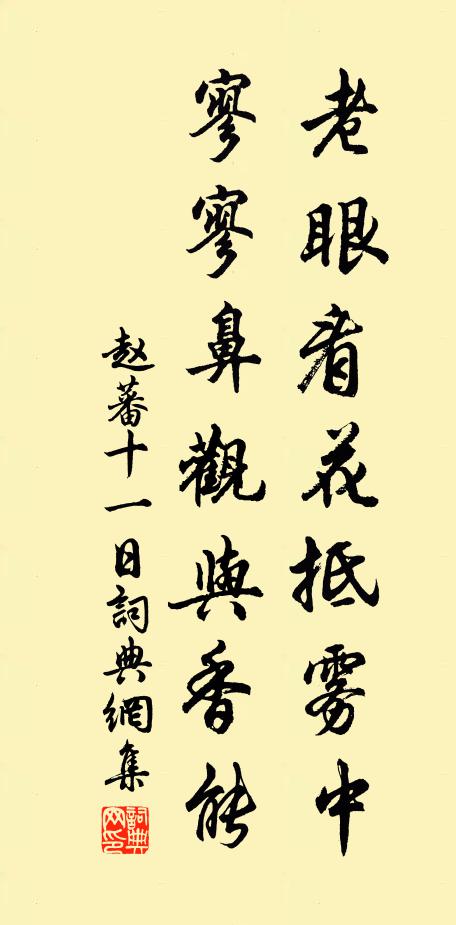 老眼看花抵雾中
寥寥鼻觀與香能
赵蕃十一日詞典網集
詞典网印